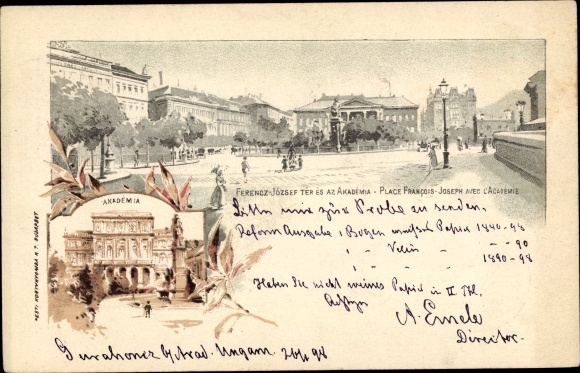 FERENCZ-JÓZSEF TÉR ÉS AZ AKADÉMIA - PLACE FRANÇOIS-JOSEPH AVEC L'ACADÉMIE
AKADÉMIA
PESTI KÖNYVNYOMDA R. T. BUDAPEST
Bitte mir zur Probe zu senden.
Reform Ausgabe 1 Bogen Papier 1880-98
" - " - - 90
" - " 1890-98
Haben Sie nicht weisses Papier in II Thl.
A. Emele
Director.
Ungarn 26/1 98